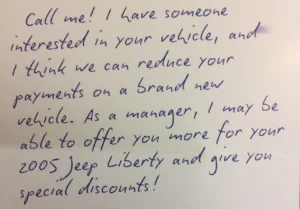 Call me! I have someone
interested in your vehicle, and
I think we can reduce your
payments on a brand new
vehicle. As a manager, I may be
able to offer you more for your
2005 Jeep Liberty and give you
special discounts!